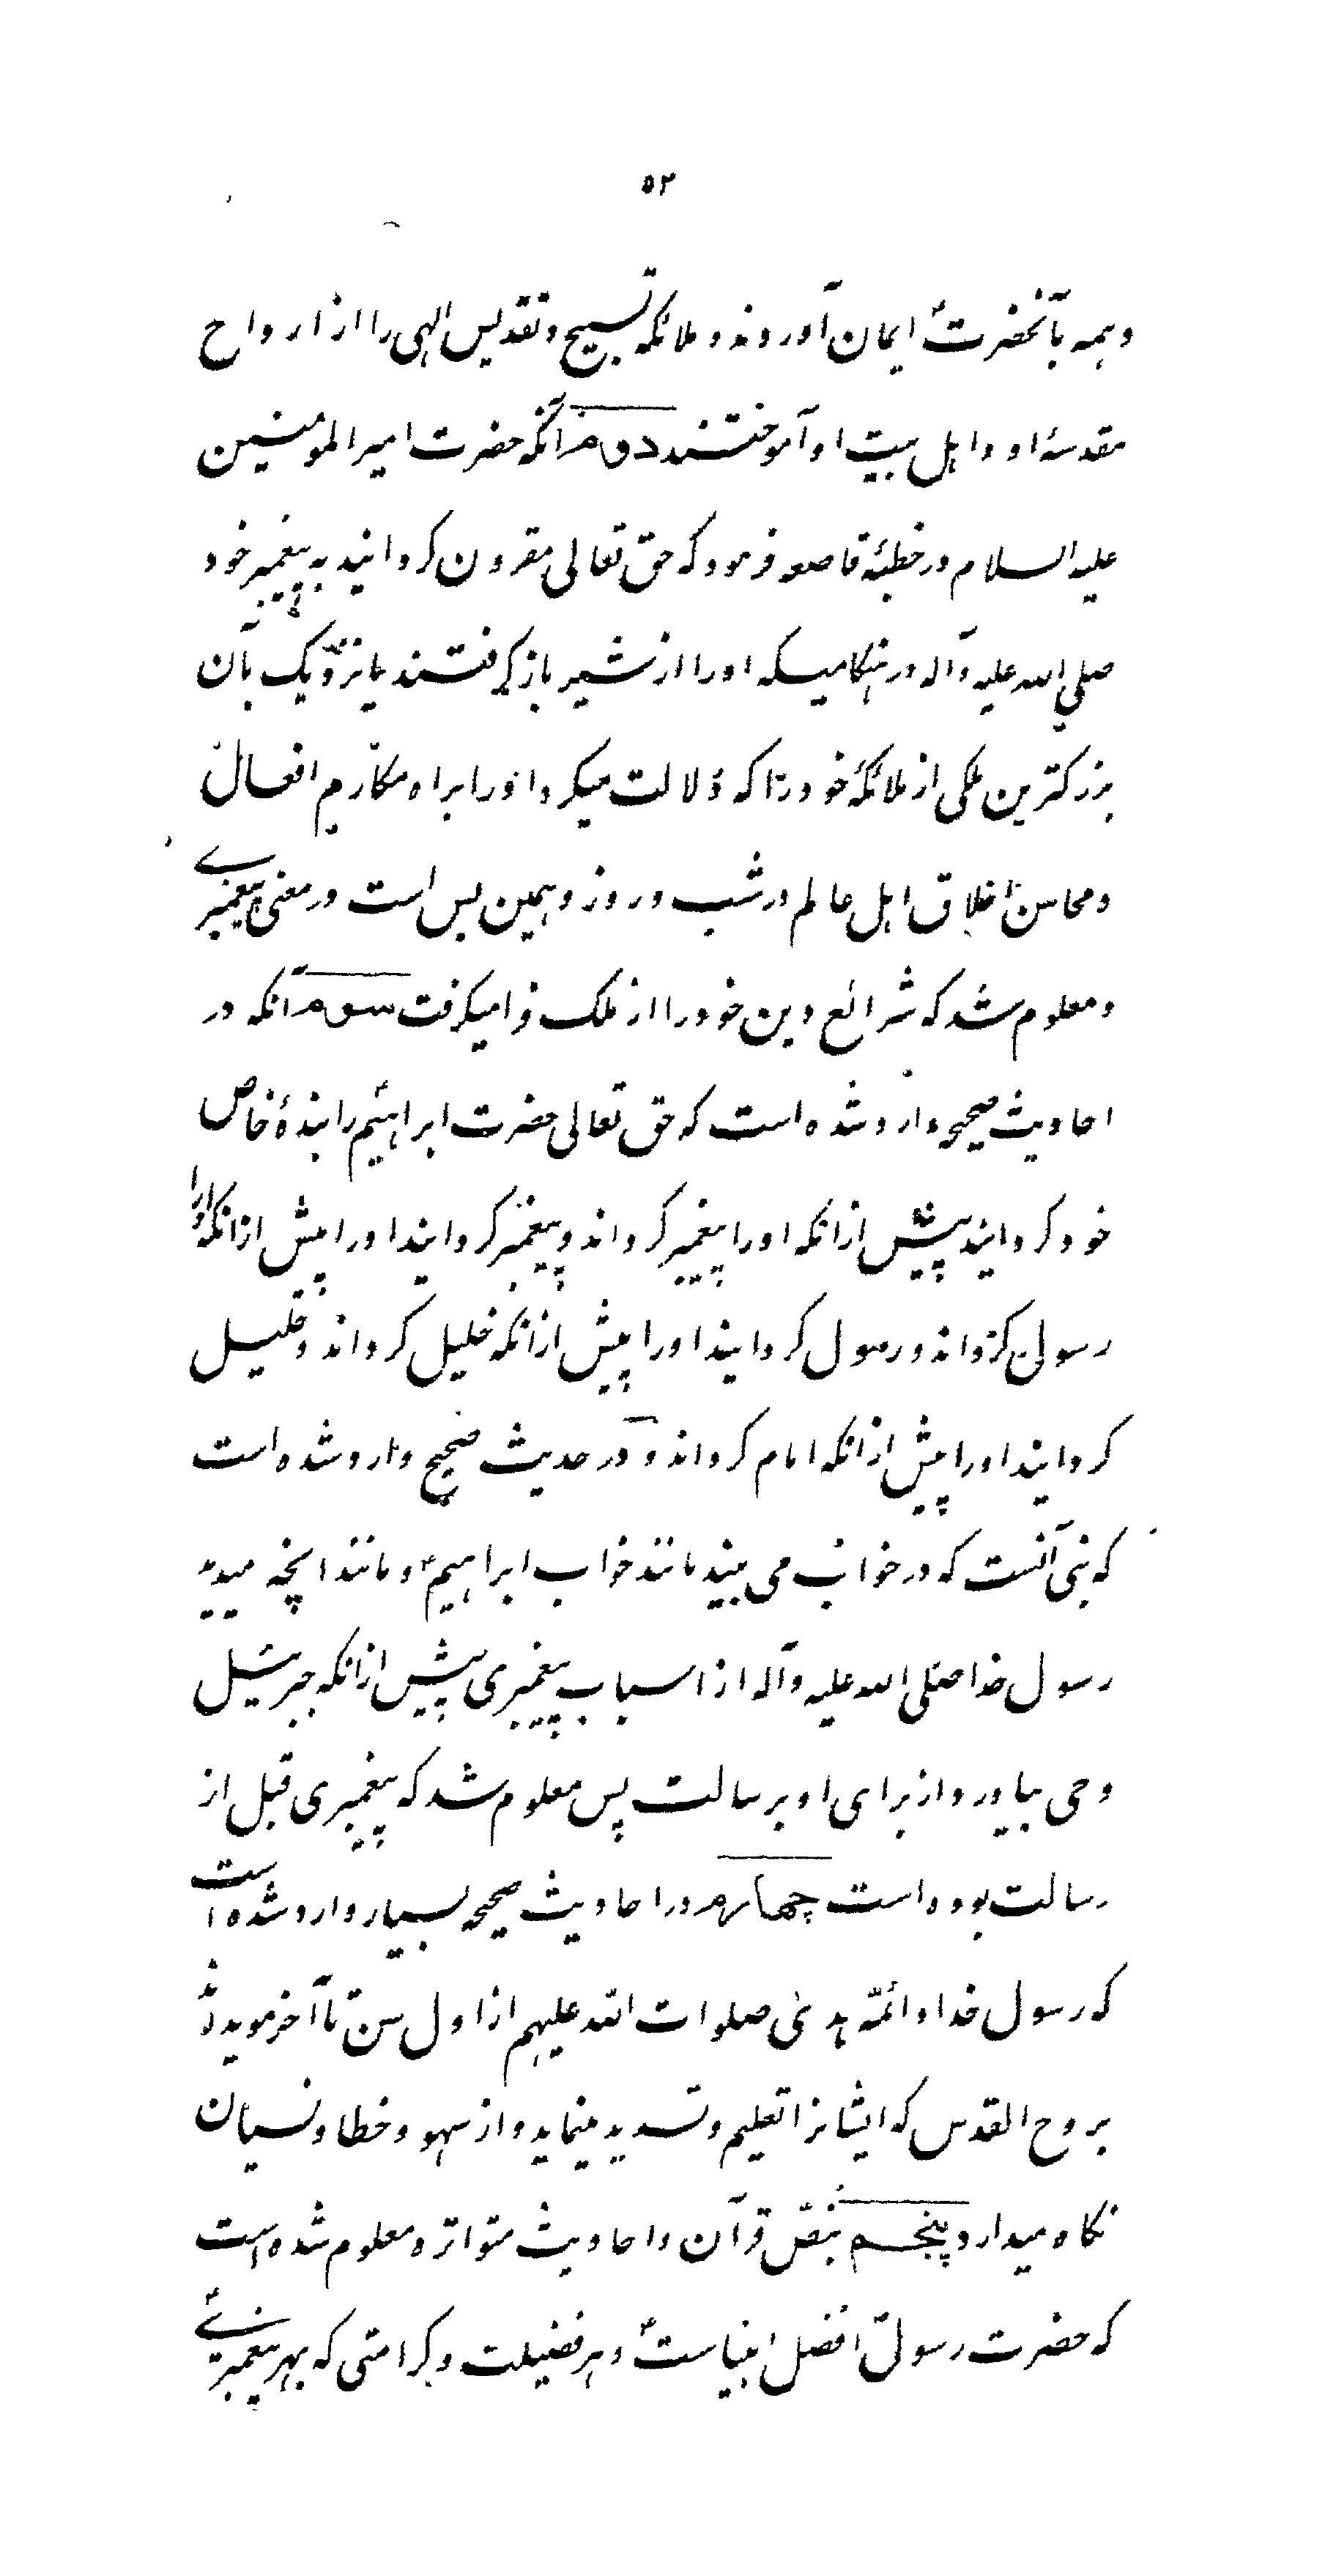 ۵۲
وهمه بآنحضرتؐ ایمان آوردند و ملائکه تسبیح و تقدیس الهی را از ارواح
مقدسهٔ او و اهل بیت او آموختند دوم آنکه حضرت امیر المومنین
علیه السلام در خطبهٔ قاصعه فرمود که حق تعالی مقرون گردانید به پیغمبر خود
صلی الله علیه وآله در هنگامیکه او را از شیر بازگرفتند یا نزدیک بآن
بزرگترین ملکی از ملائکهٔ خود را که دلالت میکرد او را براه مکارم افعال
و محاسن اخلاق اهل عالم در شب و روز و همین بس است در معنی پیغمبرے
و معلوم شد که شرائع دین خود را از ملک فرامیگرفت سوم آنکه در
احادیث صحیحه وارد شده است که حق تعالی حضرت ابراهیمؑ را بندهٔ خاص
خود گردانید پیش ازانکه او را پیغمبر گرداند و پیغمبر گردانید او را پیش ازانکه اورا
رسول گرداند و رسول گردانید او را پیش ازانکه خلیل گرداند و خلیل
گردانید او را پیش ازانکه امام گرداند و در حدیث صحیح وارد شده است
که نبی آنست که در خواب می بیند مانند خواب ابراهیمؑ و مانند انچه میدید
رسول خدا صلی الله علیه وآله از اسباب پیغمبری پیش ازانکه جبرئیل
وحی بیاورد از برای او برسالت پس معلوم شد که پیغمبری قبل از
رسالت بوده است چهارم در احادیث صحیحه بسیار وارد شده است
که رسول خدا و ائمّه هدیٰ صلوات الله علیهم از اول سن تا آخر موید اند
بروح القدس که ایشانرا تعلیم و تسدید مینماید و از سهو و خطا و نسیان
نگاه میدارد پنجم بنصّ قرآن و احادیث متواتره معلوم شده است
که حضرت رسولؐ افضل انبیاست و هر فضیلت و کرامتی که بهر پیغمبرے